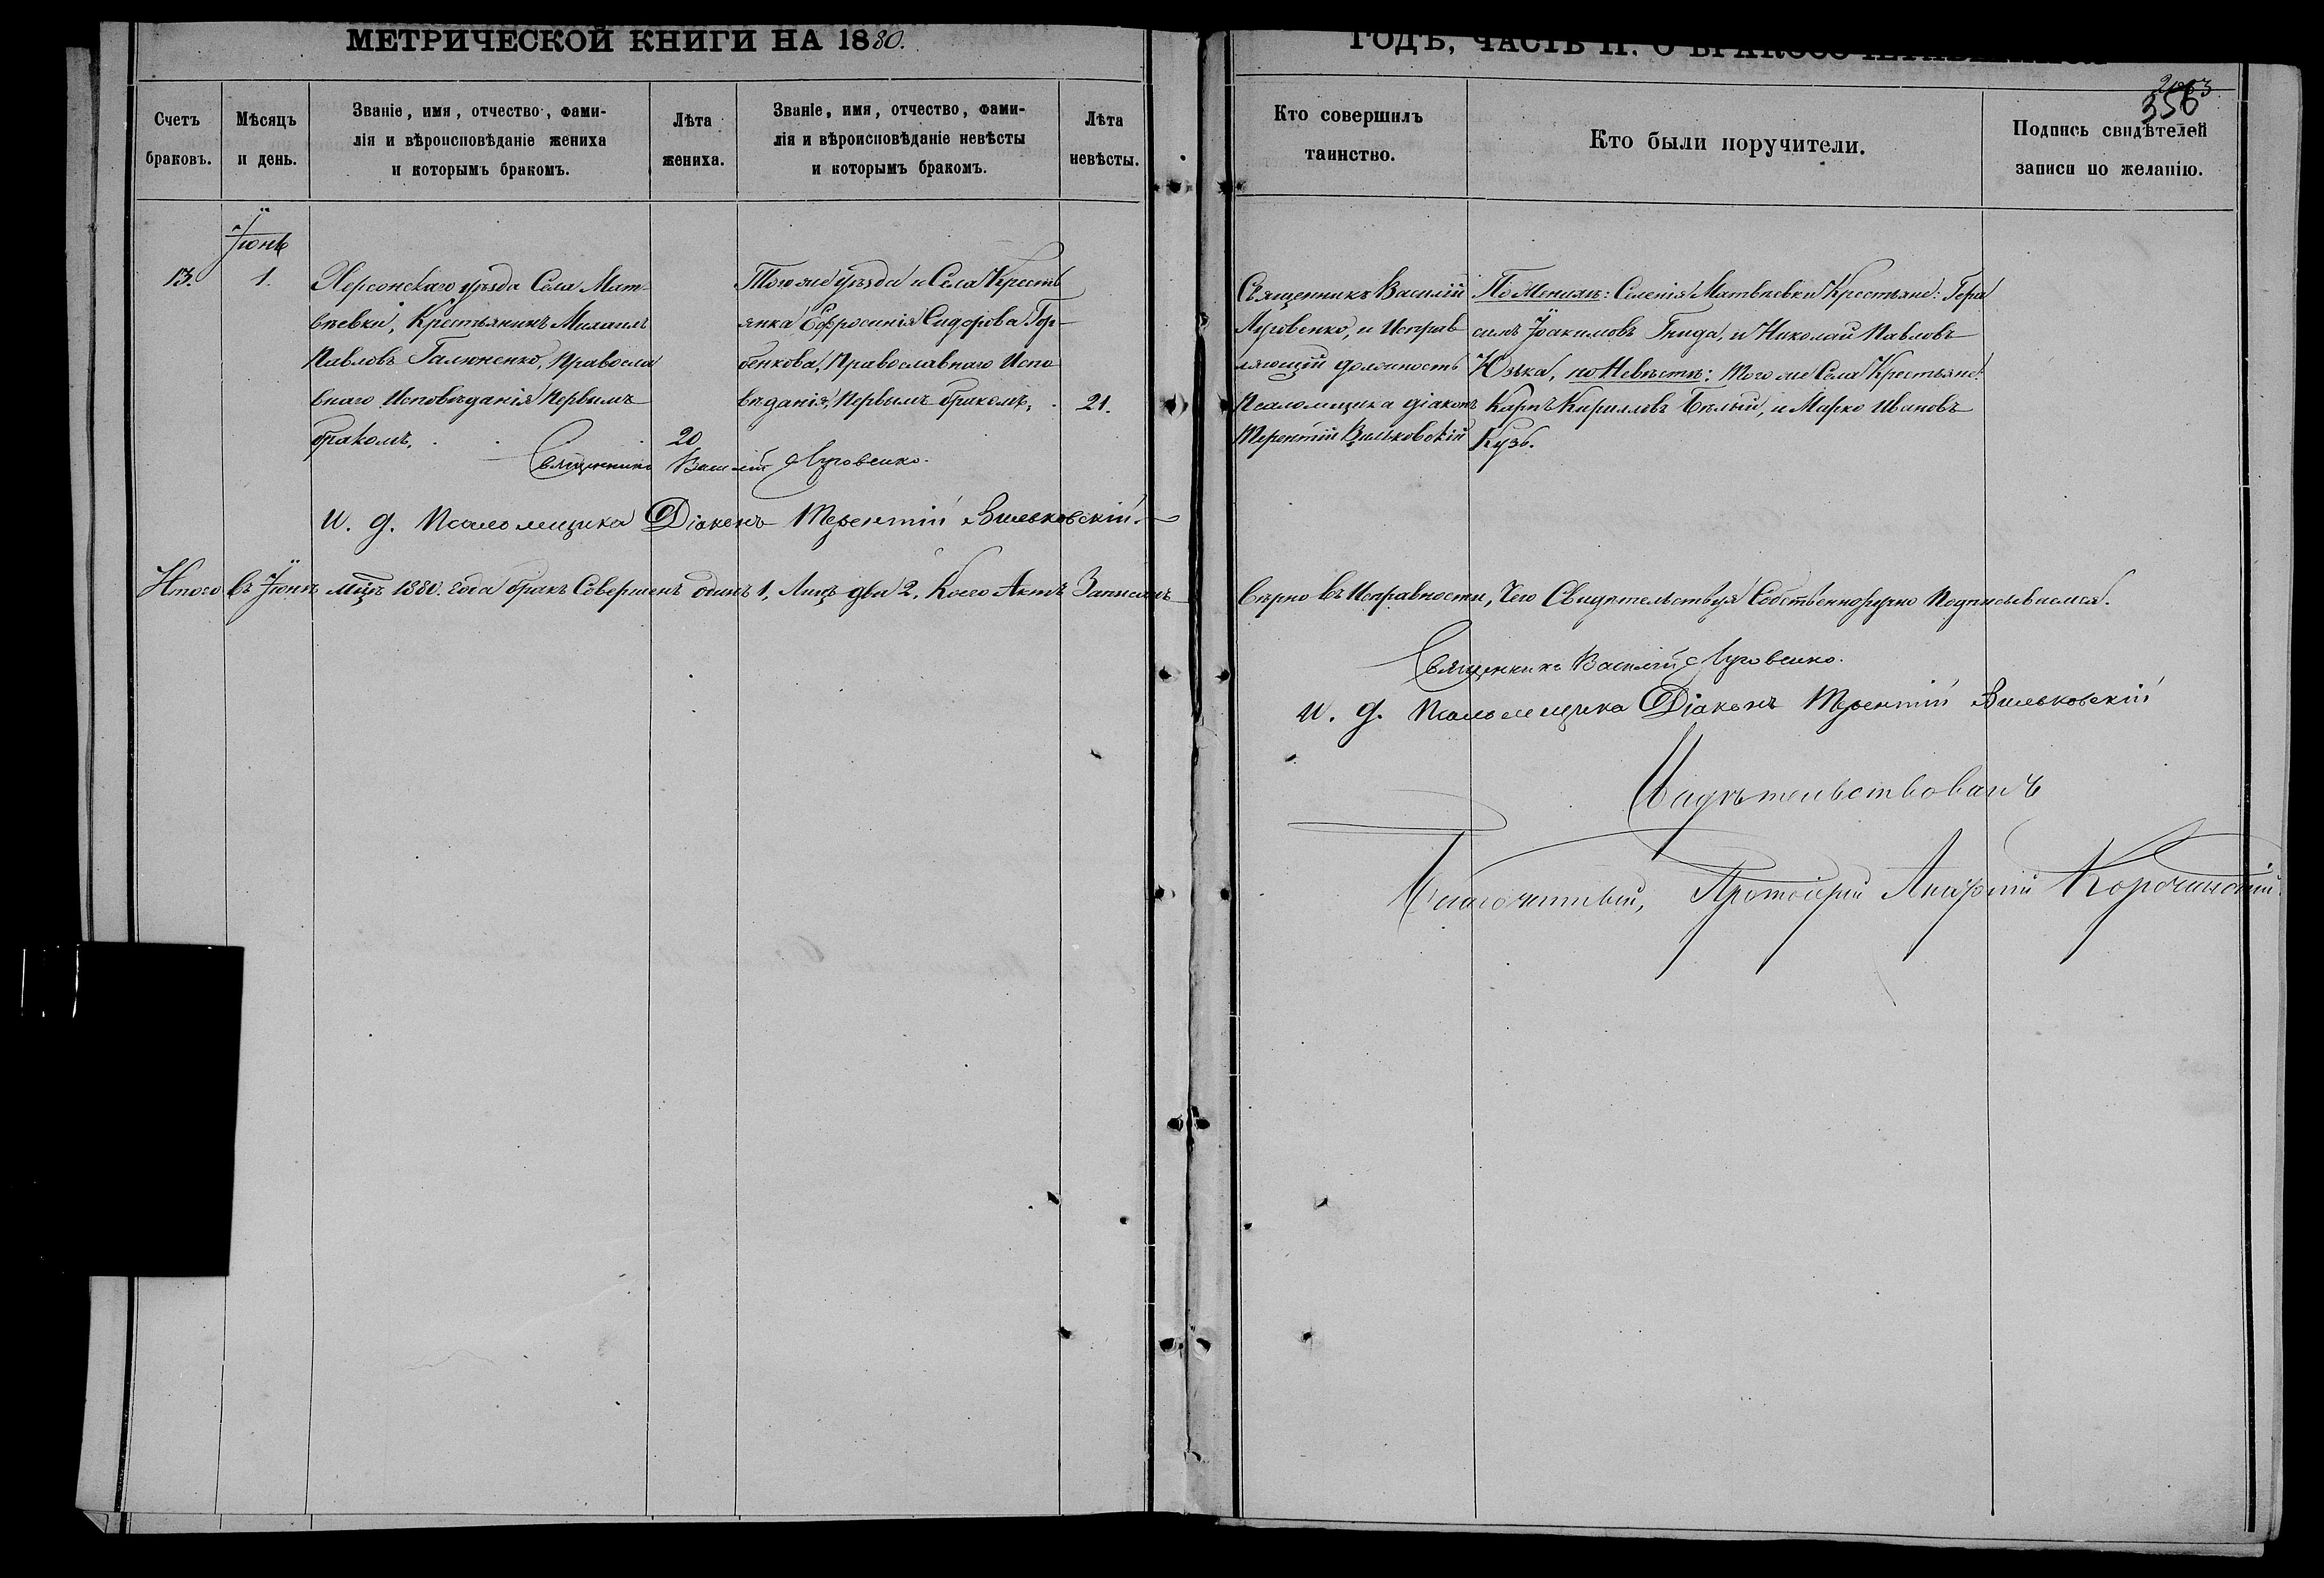 МЕТРИЧЕСКОЙ КНИГИ НА 1880.
Счетъ браковъ.
Мѣсяцъ и день.
Званіе, имя, отчество, фами-
лія и вѣроисповѣданіе жениха
и которымъ бракомъ.
Лѣта жениха.
Званіе, имя, отчество, фами-
лія и вѣроисповѣданіе невѣсты
и которымъ бракомъ.
Лѣта невѣсты.
Іюнь
13.
1.
Херсонскаго уѣзда Села Мат-
вѣевки, Крестьянинъ Михаилъ
Павловъ Галюненко, Правосла
внаго Исповѣданія, Первымъ
бракомъ.
20
Того же уѣзда и Села Кресть
янка Евфросинія Сидорова Гор-
бенкова, Православнаго Испо
вѣданія, Первымъ бракомъ,
21.
Священникъ Василій Луговенко.
И. д. Псаломщика Діаконъ Терентій Вильковскій.
Итого въ Іюнѣ мцѣ 1880. года бракъ Совершенъ одинъ 1, Лицъ два 2, Коего Актъ Записанъ
ГОДЪ, ЧАСТЬ II. О БРАКОСОЧЕТАВШИХСЯ
356
Кто совершилъ
таинство.
Кто были поручители.
Подпись свидѣтелей
записи по желанію.
Священникъ Василій
Луговенко, и Исправ
ляющій должность
Псаломщика діаконъ
Терентій Вильковскій
По Женихѣ: Селенія Матвѣевки Крестьяне: Гера
симъ Іоакимовъ Гнида, и Николай Павловъ
Юзька, по Невѣстѣ: Того же Села Крестьяне:
Карпъ Кирилловъ Бѣлый, и Марко Ивановъ
Кузь.
Вѣрно въ Исправности, Чего Свидѣтельствуя Собственноручно Подписываемся.
Священникъ Василій Луговенко.
И. д. Псаломщика Діаконъ Терентій Вильковскій
Свидѣтельствовалъ
Благочинный, Протоіерей Корочанскій